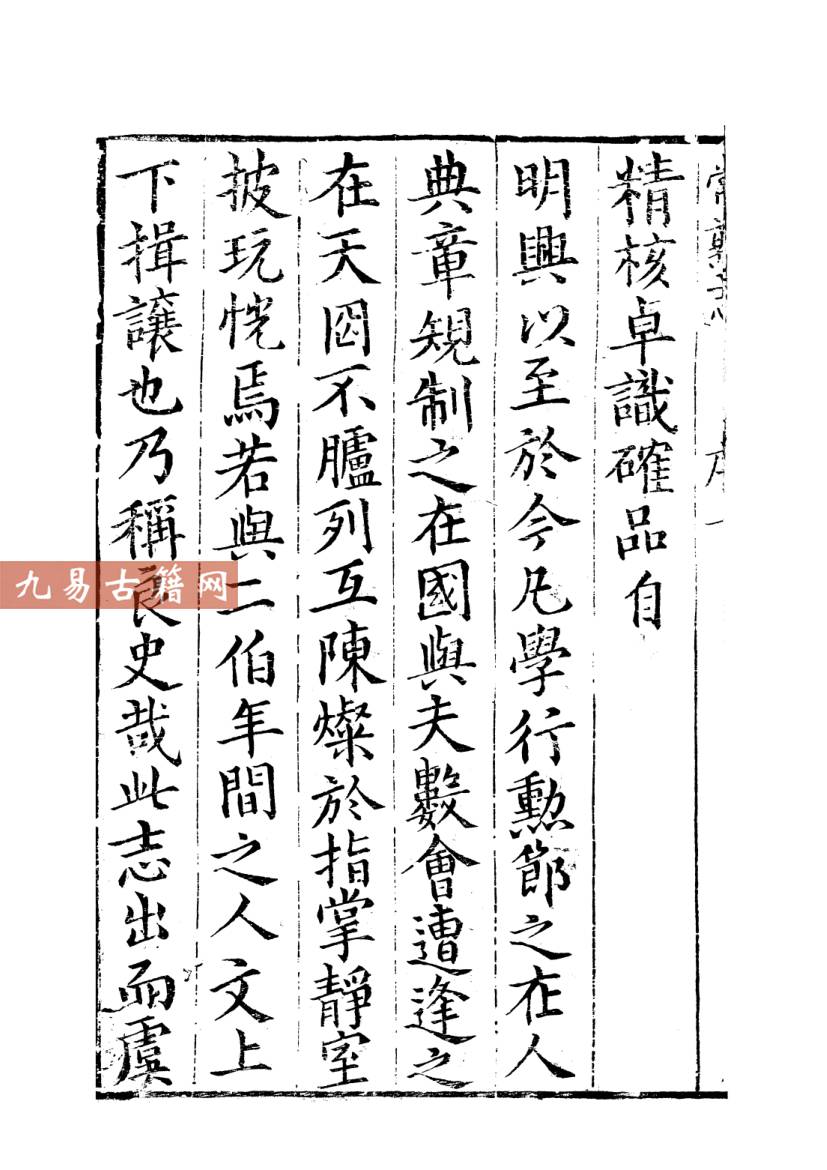 精核卓識確品自
明興以至於今凡學行勲節之在人
典章規制之在國與夫數會遭逢之
在天囙不臚列互陳燦於指掌靜室
披玩恍焉若與二伯年間之人文上
下揖讓也乃稱良史哉此志出而虞
九易古籍网